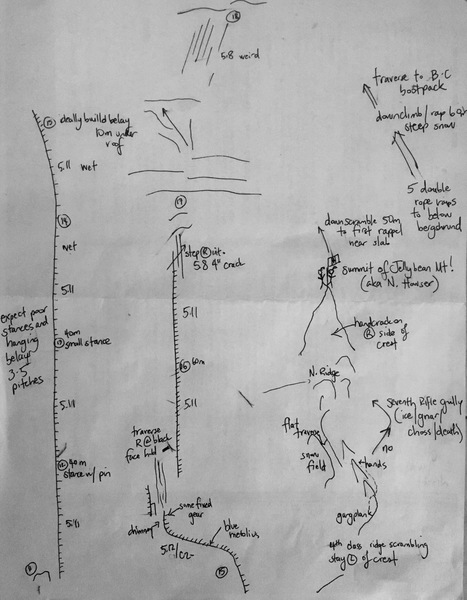 18
5.8 weird
traverse to B.C
bootpack
downclimb/rap
steep snow
5 double
rope raps
to below
bergshrund
15
ideally build belay
10m under
roof
5.11 wet
14
wet
5.11
expect poor
stances and
hanging
belays
3.5
pitches
13
40m
small stance
5.11
12
40m
stance w/ pin
5.11
17
step R int.
5.8 4" crack
5.11
16
60m
5.11
traverse
R @ black
face hold
some fixed
gear
chimney
blue
metolius
5.12/C2-
15
downscramble 50m
to first rappel
near slab
summit of Jellybean Mt!
(aka N. Howser)
handcrack on
R side of
crest
N. Ridge
Seventh Rifle gully
(ice/gnar/
choss/death)
no
flat
traverse
snow
field
hands
gangplank
4th class ridge scrambling
stay L of crest